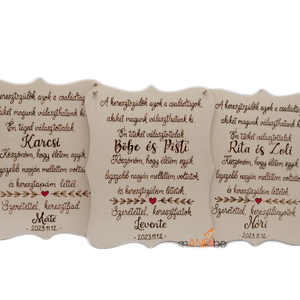 A keresztszülők azok a családtagok,
akiket magunk választhatunk ki.
Én téged választottalak
Karcsi
Köszönöm, hogy életem egyik
legszebb napján mellettem voltál
és keresztapám lettél
Szeretettel, keresztfiad
Máté
- 2023.11.12. -
A keresztszülők azok a családtagok,
akiket magunk választhatunk ki.
Én titeket választottalak
Böbe és Pisti
Köszönöm, hogy életem egyik
legszebb napján mellettem voltatok
és keresztszüleim lettetek.
Szeretettel, keresztfiatok
Levente
- 2023.11.12. -
A keresztszülők azok a családtagok,
akiket magunk választhatunk ki.
Én titeket választottalak
Rita és Zoli
Köszönöm, hogy életem egyik
legszebb napján mellettem voltatok
és keresztszüleim lettetek.
Szeretettel, keresztlányotok
Nóri
- 2023.11.12. -